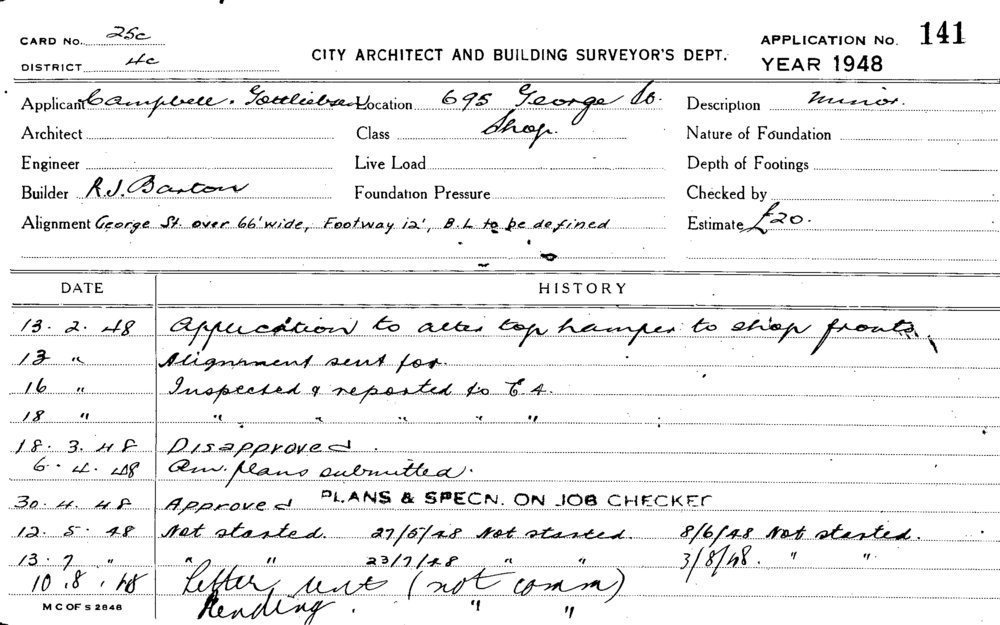 CARD No. 25c
DISTRICT 4c
CITY ARCHITECT AND BUILDING SURVEYOR'S DEPT.
APPLICATION No. 141
YEAR 1948
Applicant Campbell. Gottliebsen Location 695 George St. Description Minor.
Architect Class Shop. Nature of Foundation
Engineer Live Load Depth of Footings
Builder R.J. Barton Foundation Pressure Checked by
Alignment George St. over 66' wide, Footway 12', B.L to be defined Estimate £20.
DATE HISTORY
13. 2. 48 Application to alter top hamper to shop fronts.
13 " Alignment sent for.
16 " Inspected & reported to C.A.
18 " " " " " "
18. 3. 48 Disapproved.
6. 4. 48 Am. plans submitted.
30. 4. 48 Approved PLANS & SPECN. ON JOB CHECKED
12. 5. 48 Not started. 27/5/48 Not started. 8/6/48 Not started.
13. 7 " " " 23/7/48 " " 3/8/48. " "
10. 8. 48 Letter sent (not comm)
Pending. " "
M C OF S 2848